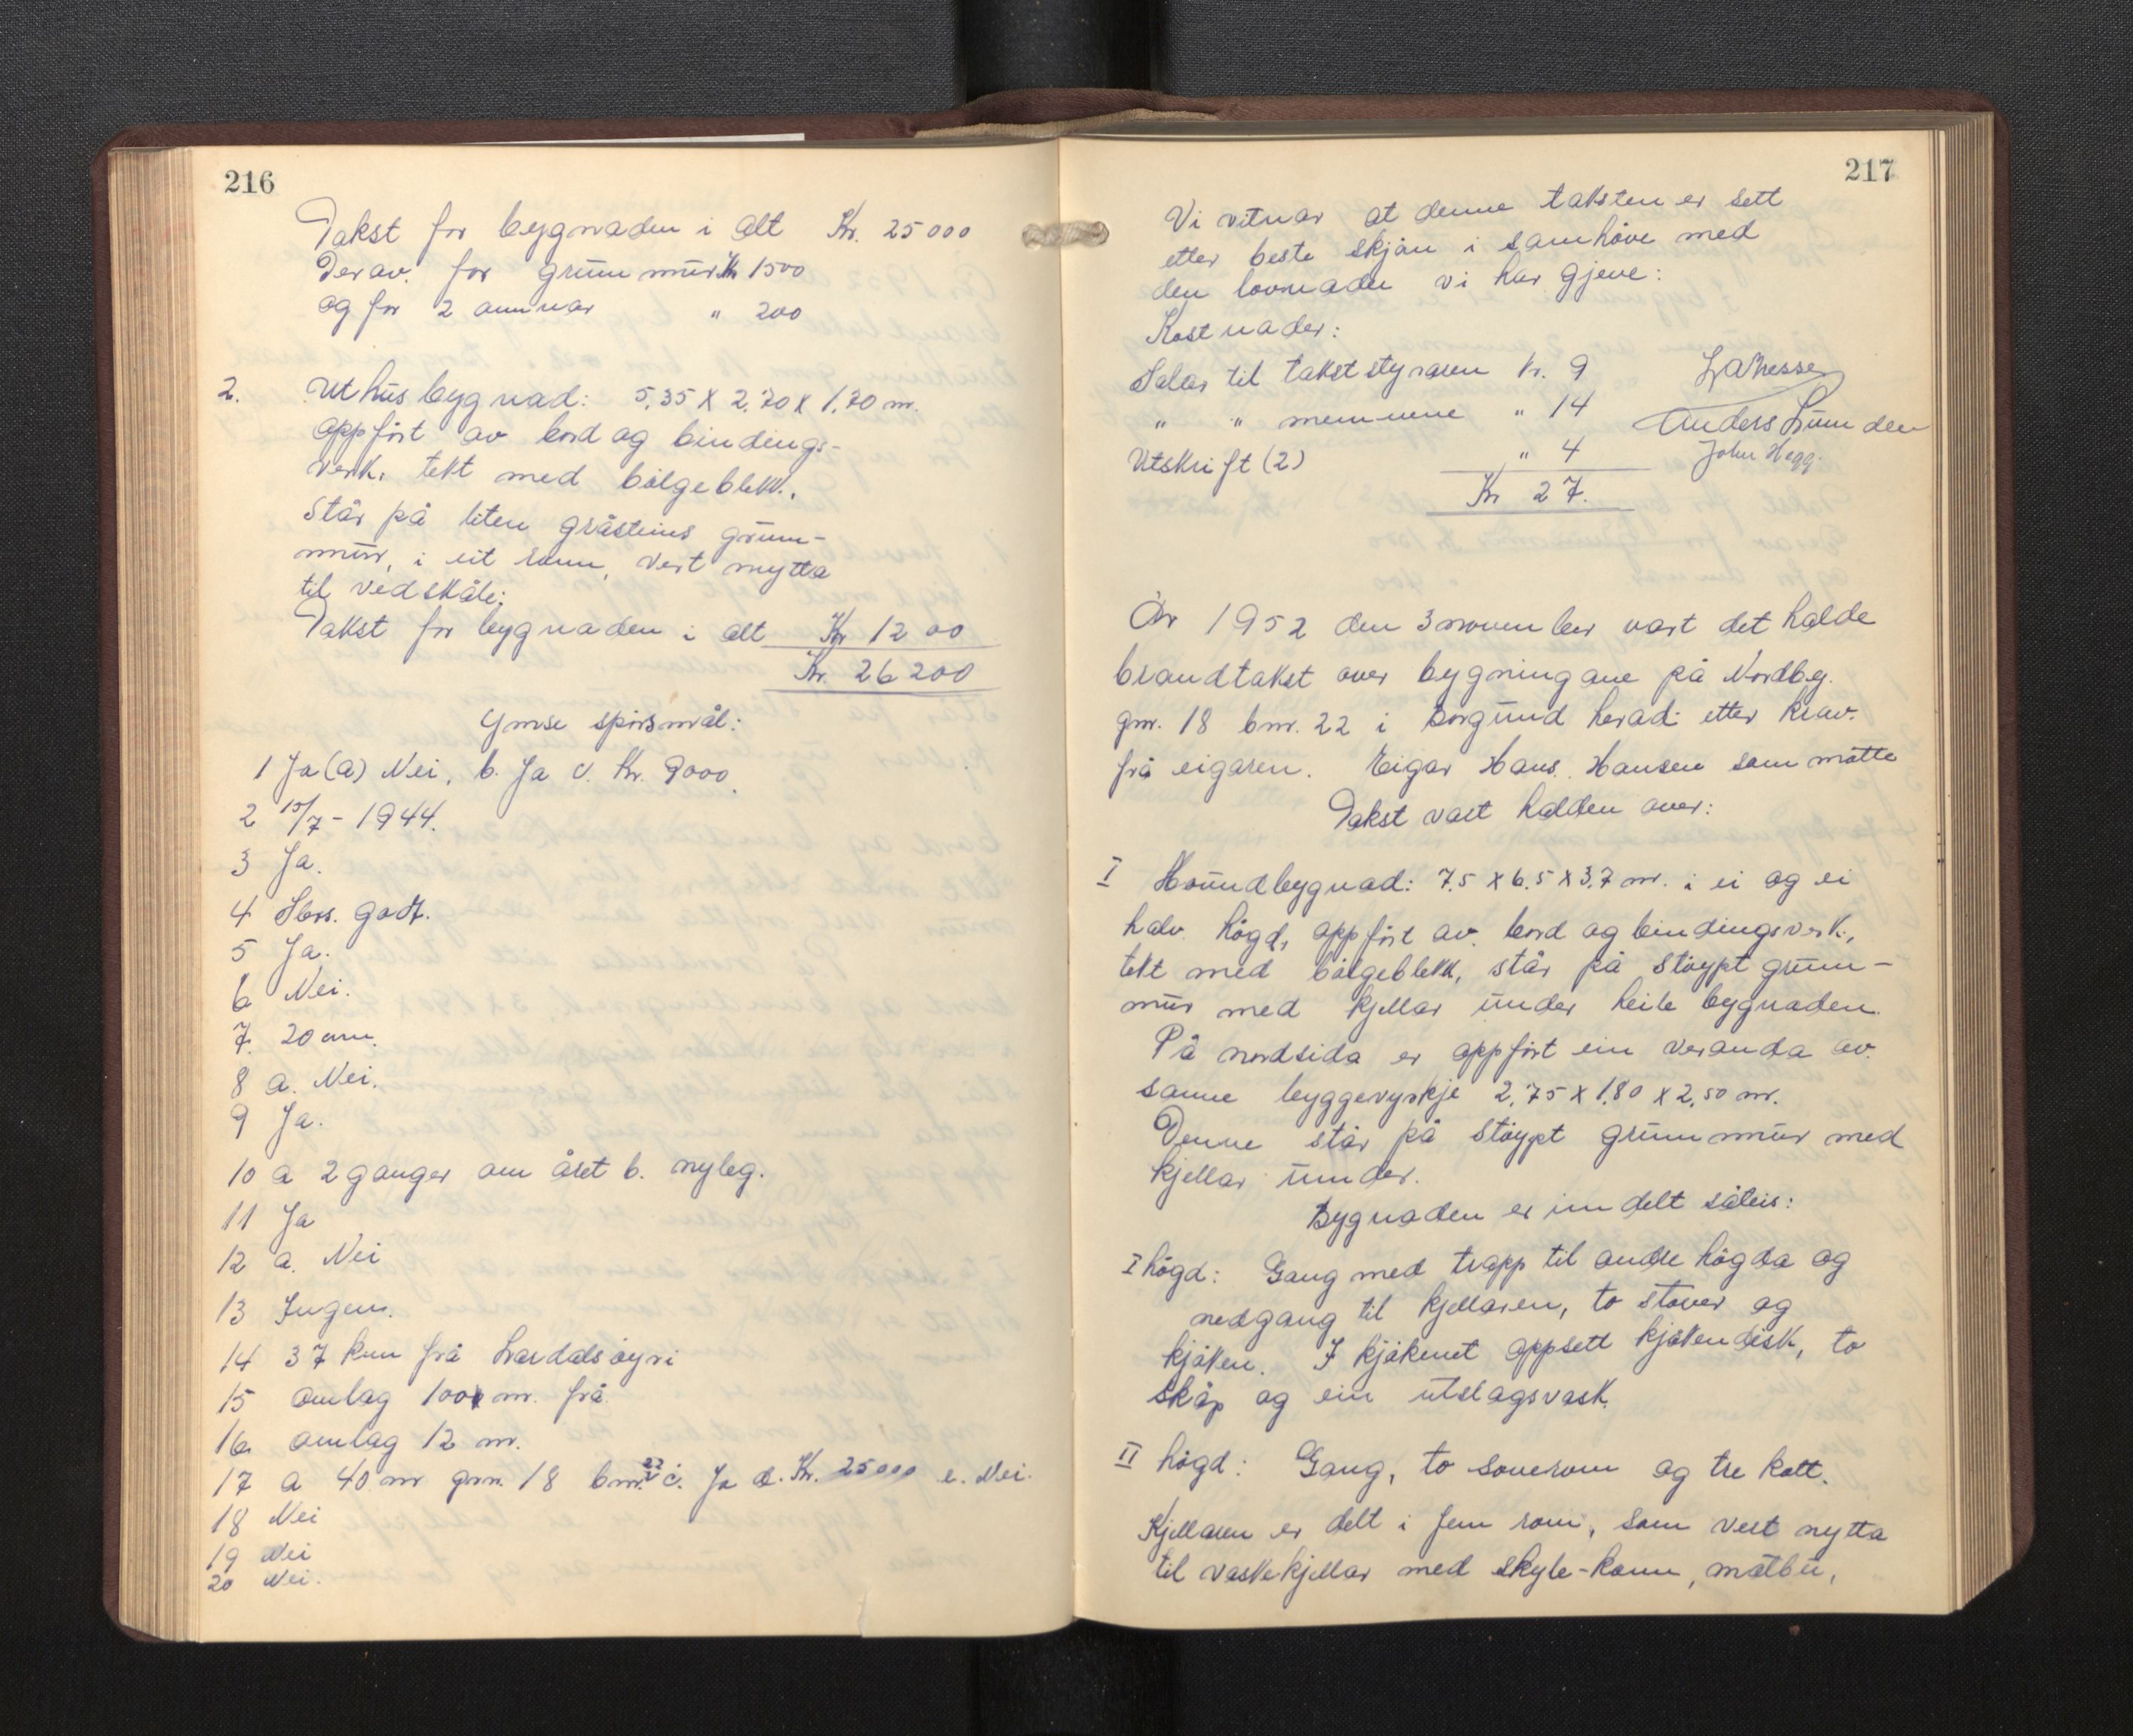 216
Takst for bygnaden i alt Kr. 25000
Derav. for grunnmur Kr 1500
og for 2 omnar " 200
2. Uthusbygnad: 5,35 X 2,70 X 1,70 m.
oppført av bord og bindings-
verk, tekt med bølgeblekk,
står på liten gråsteins grunn-
mur, i eit rom, vert nytta
til vedskåle:
Takst for bygnaden i alt Kr 1200
Kr. 26200
Ymse spørsmål:
1 Ja (a) Nei, b. Ja c. Kr. 9000.
2 15/7 - 1944.
3 Ja.
4 Sers. godt.
5 Ja.
6 Nei.
7. 20 cm.
8 a. Nei.
9 Ja.
10 a 2 ganger om året b. nyleg.
11 Ja
12 a. Nei
13 Ingen.
14 37 km frå Lærdalsøyri
15 omlag 100 m. frå
16 omlag 12 m.
17 a 40 m gnr. 18 bnr. 22 c. Ja d. Kr. 25000 e. Nei.
18 Nei
19 Nei
20 Nei.
217
Vi vitnar at denne taksten er sett
etter beste skjøn i samhøve med
den lovnaden vi har gjeve:
Kostnader:
Salær til takststyraren kr. 9
" " mennene " 14
Anders Lunden
Utskrift (2) " 4
John Hegg.
Kr 27.
År 1952 den 3 november vart det halde
brandtakst over bygningane på Nordbg.
gnr. 18 bnr. 22 i Borgund herad etter krav.
frå eigaren. Eigar Hans. Hansen som møtte
Takst vart halden over:
I Hovudbygnad: 7.5 X 6.5 X 3.7 m. i ei og ei
halv høgd, oppført av bord og bindingsverk,
tekt med bølgeblekk, står på støypt grunn-
mur med kjellar under heile bygnaden.
På nordsida er oppført ein veranda av
same byggevyrkje 2,75 X 1.80 X 2,50 m.
Denne står på støypt grunnmur med
kjellar under.
Bygnaden er inndelt såleis:
I høgd: Gang med trapp til andre høgda og
nedgang til kjellaren, to stover og
kjøken. I kjøkenet oppsett kjøkendisk, to
skåp og ein utslagsvask.
II høgd: Gang, to soverom og tre kott.
Kjellaren er delt i fem rom, som vert nytta
til vaskekjellar med skyle-kom, matbu,